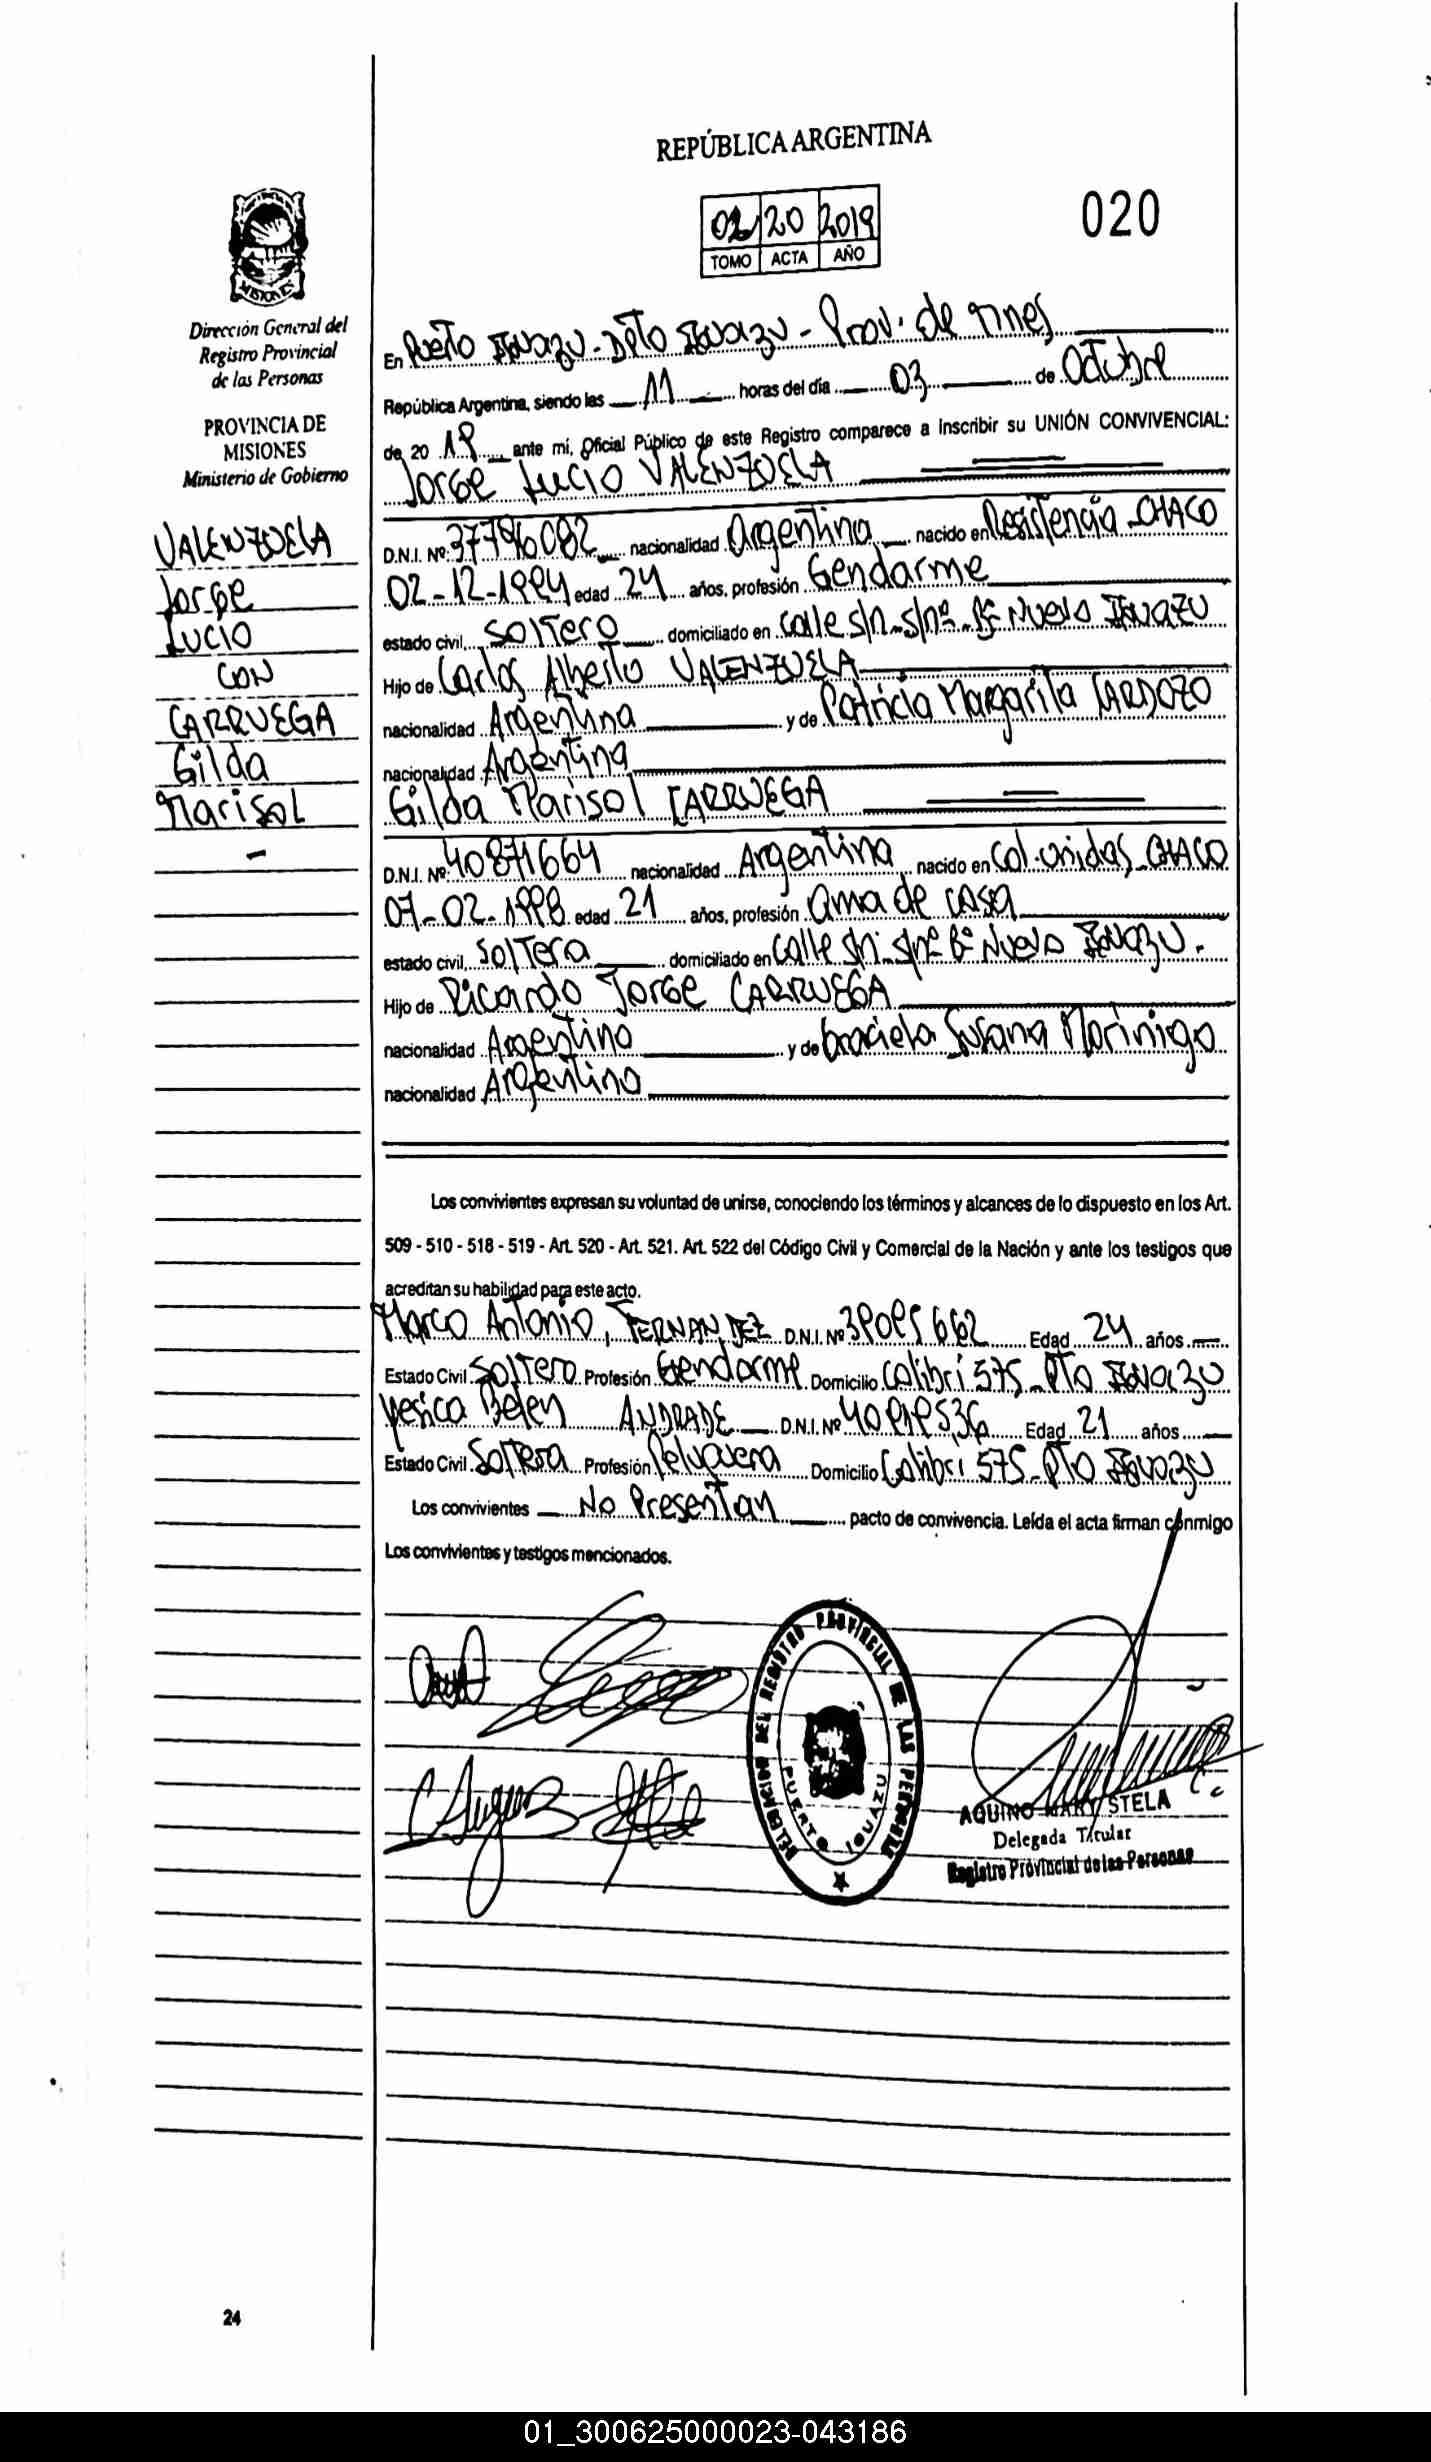 REPÚBLICA ARGENTINA
20 2019
TOMO ACTA AÑO
020
MISIONES
Dirección General del
Registro Provincial
de las Personas
PROVINCIA DE
MISIONES
Ministerio de Gobierno
VALENZUELA
Jorge
Lucio
CON
CARRUEGA
Gilda
Marisol
En Puerto Iguazu - Dpto Iguazu - Prov. de Mnes
República Argentina, siendo las 11 horas del día 03 de Octubre
de 20 19 ante mí, Oficial Público de este Registro comparece a inscribir su UNIÓN CONVIVENCIAL:
Jorge Lucio VALENZUELA
D.N.I. Nº 37796082 nacionalidad Argentina nacido en Resistencia - CHACO
02-12-1994 edad 24 años, profesión Gendarme
estado civil, Soltero domiciliado en calle s/n - s/nº - Bº Nuevo Iguazu
Hijo de Carlos Alberto VALENZUELA
nacionalidad Argentina y de Patricia Margarita CARDOZO
nacionalidad Argentina
Gilda Marisol CARRUEGA
D.N.I. Nº: 40871664 nacionalidad Argentina nacido en Col. Unidas - CHACO
07-02-1998 edad 21 años, profesión Ama de casa
estado civil, Soltera domiciliado en Calle s/n. s/nº Bº Nuevo Iguazu.
Hijo de Ricardo Jorge CARRUEGA
nacionalidad Argentino y de Graciela Susana Morinigo
nacionalidad Argentina
Los convivientes expresan su voluntad de unirse, conociendo los términos y alcances de lo dispuesto en los Art.
509 - 510 - 518 - 519 - Art. 520 - Art. 521. Art. 522 del Código Civil y Comercial de la Nación y ante los testigos que
acreditan su habilidad para este acto.
Marco Antonio, FERNANDEZ D.N.I. Nº Edad 24 años
Estado Civil Soltero Profesión Gendarme Domicilio Colibri 575 - Pto Iguazu
Yesica Belen ANDRADE D.N.I. Nº Edad 21 años
Estado Civil Soltera Profesión Peluquera Domicilio Colibri 575 - Pto Iguazu
Los convivientes No Presentan pacto de convivencia. Leída el acta firman conmigo
Los convivientes y testigos mencionados.
DELEGACION DEL REGISTRO PROVINCIAL DE LAS PERSONAS
PUERTO IGUAZU
AQUINO MARY STELA
Delegada Titular
Registro Provincial de las Personas
24
01_300625000023-043186